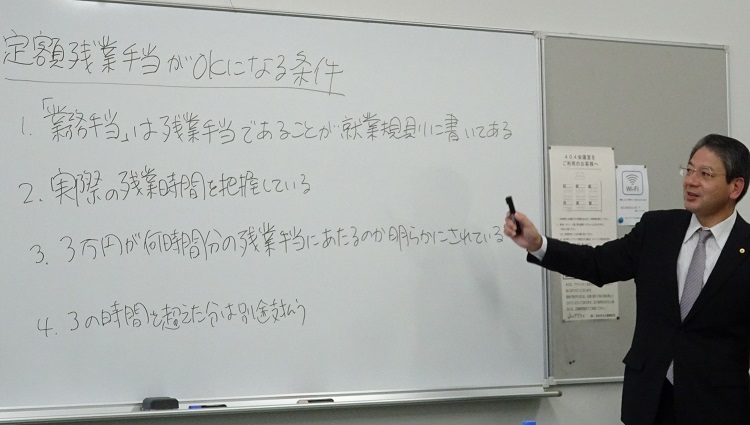 定額残業手当がOKになる条件
1. 「業務手当」は残業手当であることが就業規則に書いてある
2. 実際の残業時間を把握している
3. 3万円が何時間分の残業手当にあたるのか明らかにされている
4. 3の時間を超えた分は別途支払う
404会議室を
ご利用のお客様へ
Wi-Fi